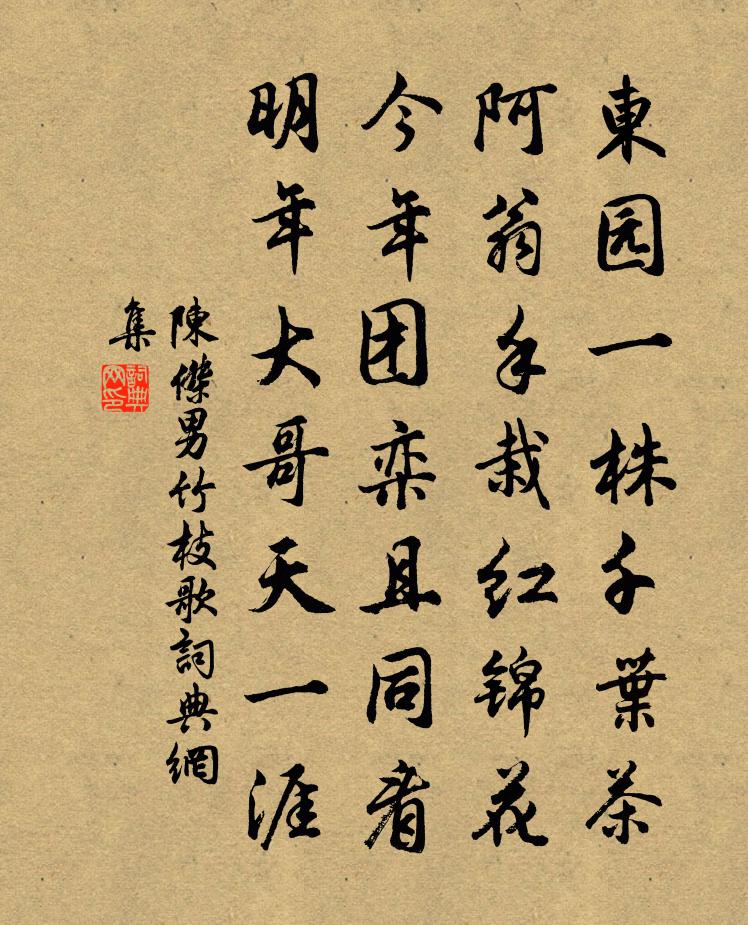 東园一株千葉茶
阿翁手栽红锦花
今年团栾且同看
明年大哥天一涯
陳傑男竹枝歌詞典網
集
詞典
网印